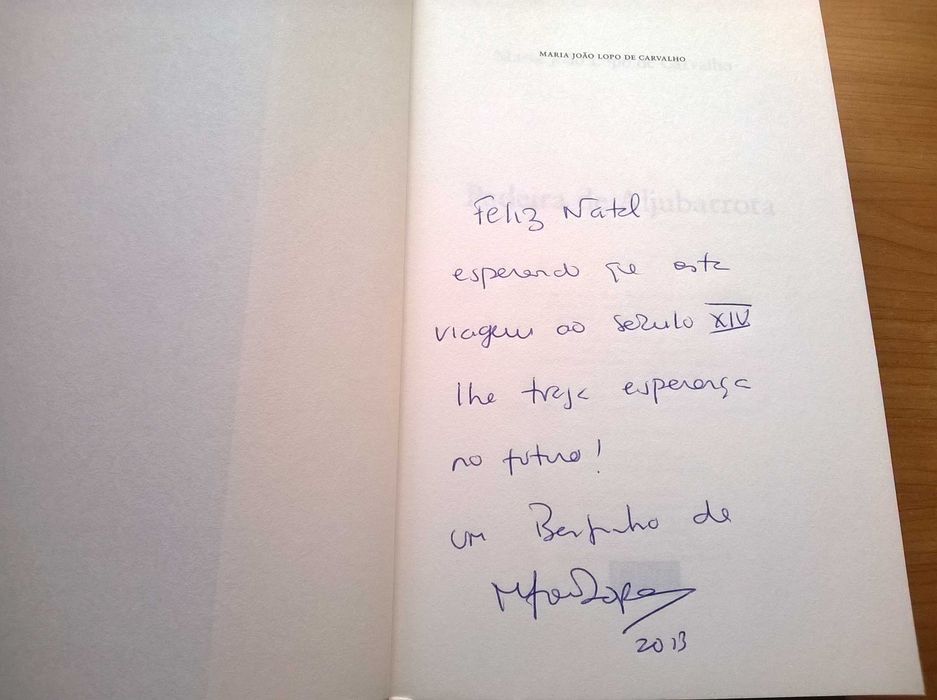 MARIA JOÃO LOPO DE CARVALHO
Feliz Natal
esperando que esta
viagem ao século XIV
lhe traga esperança
no futuro!
um Beijinho de
2013